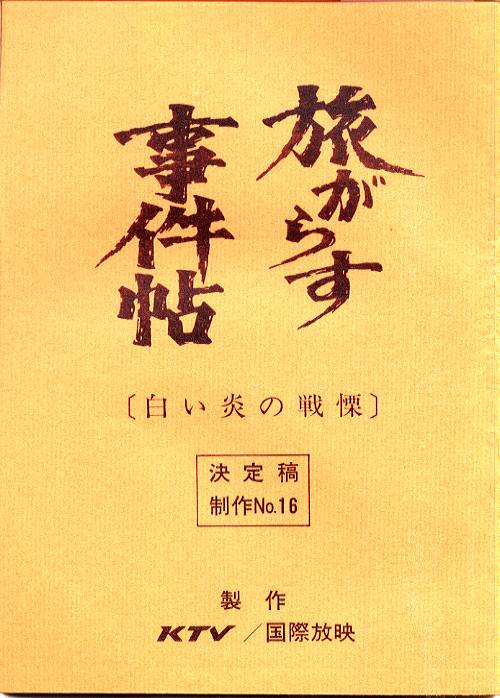 旅がらす
事件帖
〔白い炎の戦慄〕
決定稿
制作No.16
製作
KTV／国際放映